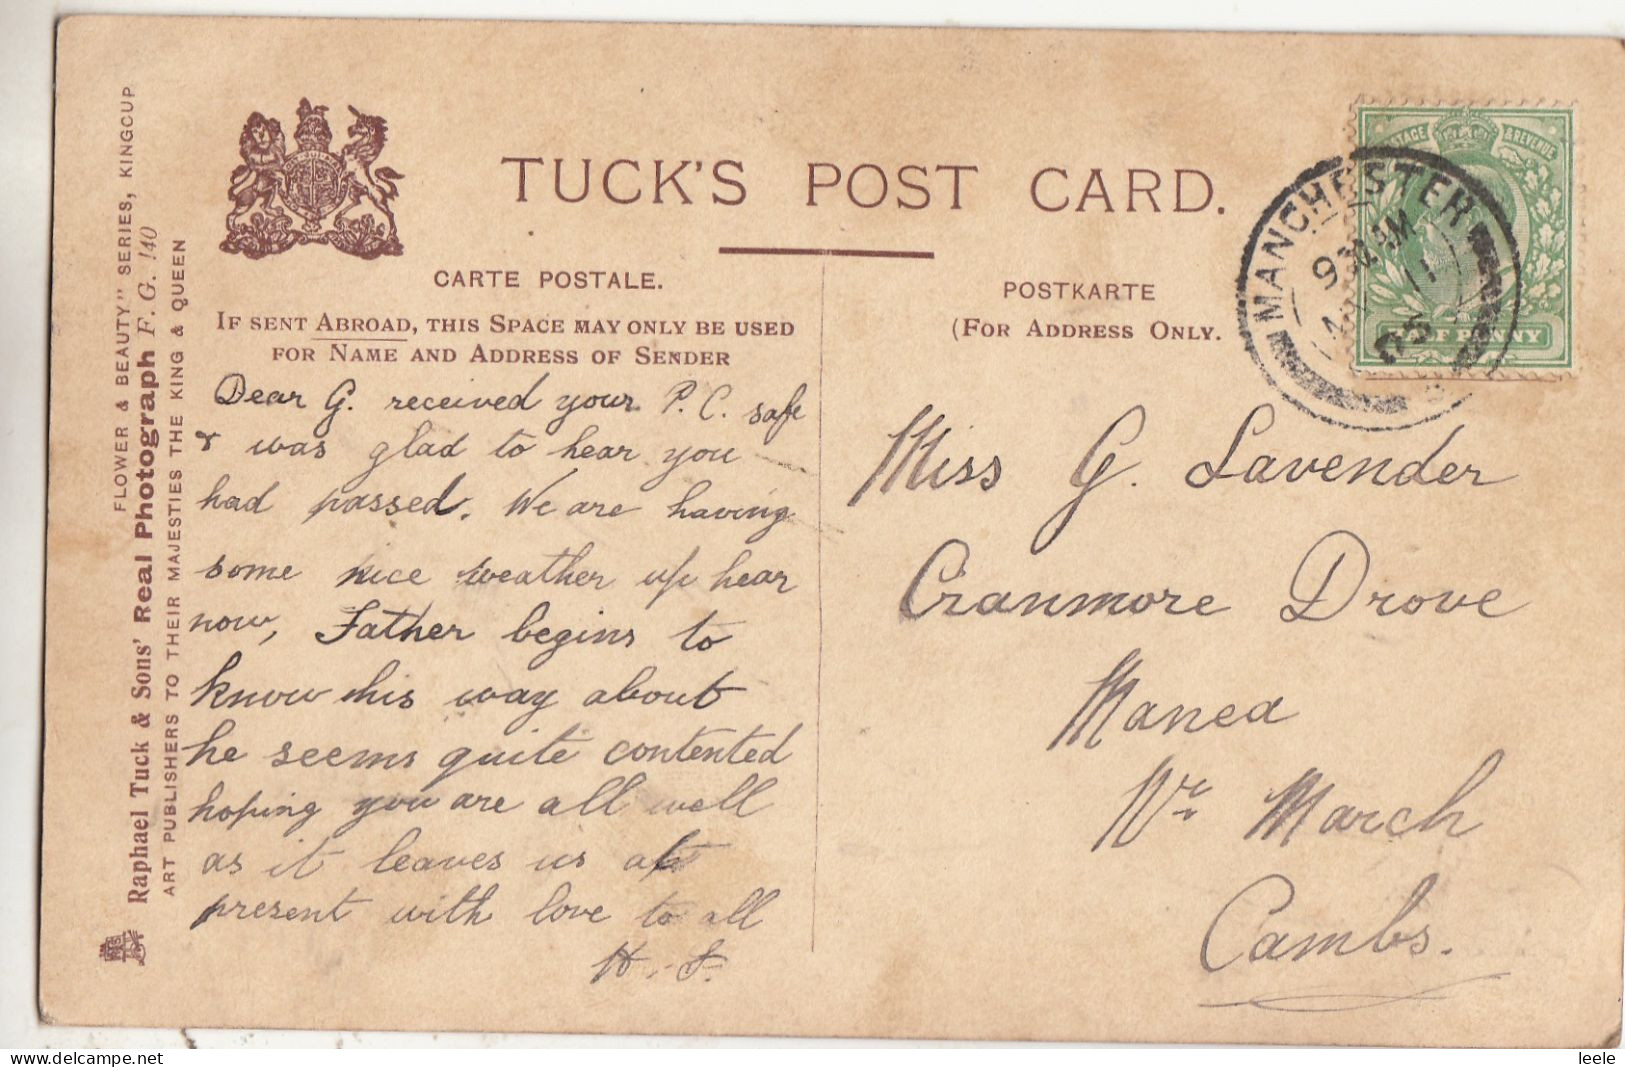 TUCK'S POST CARD.
CARTE POSTALE.
IF SENT ABROAD, THIS SPACE MAY ONLY BE USED
FOR NAME AND ADDRESS OF SENDER
POSTKARTE
(FOR ADDRESS ONLY.
FLOWER & BEAUTY" SERIES, KINGCUP
Raphael Tuck & Sons' Real Photograph F. G. 140
ART PUBLISHERS TO THEIR MAJESTIES THE KING & QUEEN
Dear G. received your P. C. safe
& was glad to hear you
had passed. We are having
some nice weather up hear
now, Father begins to
know his way about
he seems quite contented
hoping you are all well
as it leaves us at
present with love to all
MANCHESTER
AM
11
05
& REVENUE
Miss G. Lavender
Cranmore Drove
Manea
Nr March
Cambs.
delcampe.net
leele